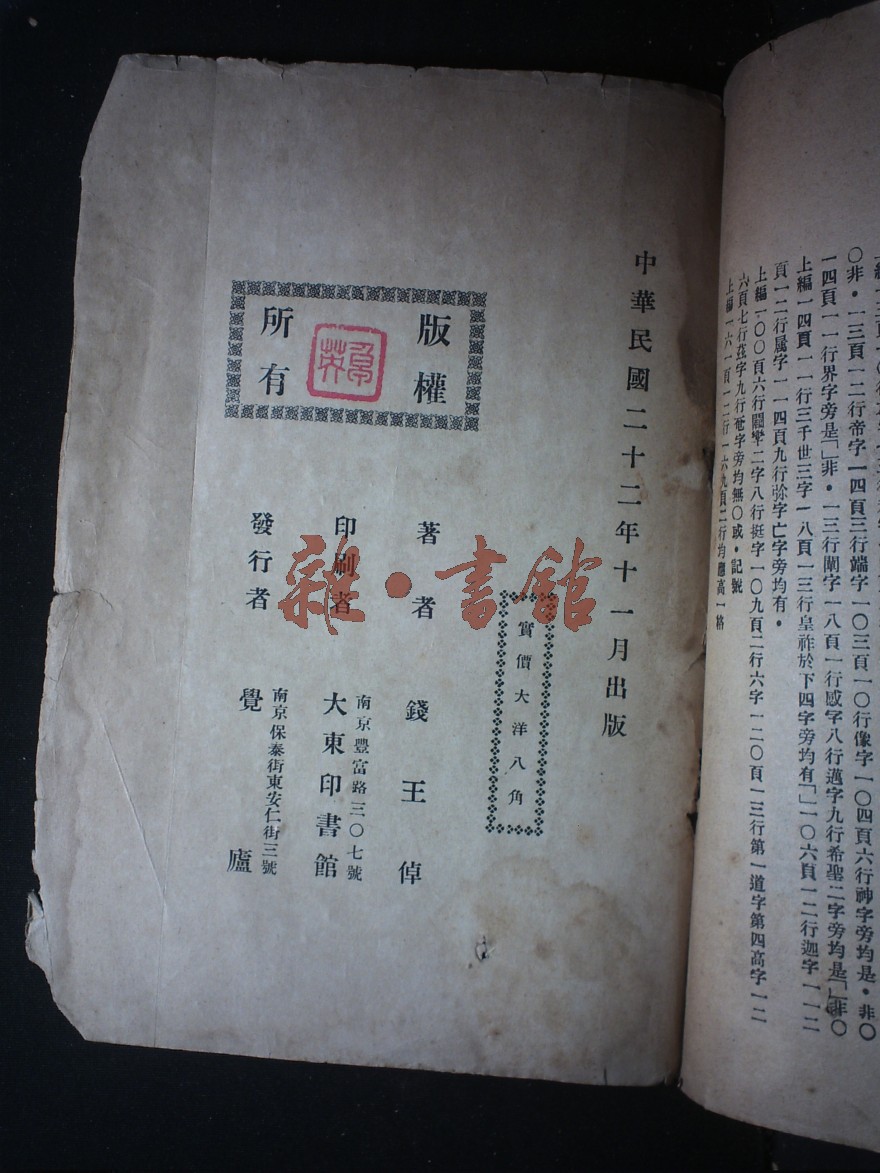 〇非·一三頁一二行帝字一四頁三行端字一〇三頁一〇行像字一〇四頁六行神字旁均是·非〇
一四頁一一行界字旁是「」非·一三行闡字一八頁一行感字八行邁字九行希聖二字旁均是「」非〇
上編一四頁一一行三千世三字一八頁一三行皇祚於下四字旁均有「」一〇六頁一二行迦字一一二
頁一二行属字一一四頁九行弥字亡字旁均有·
上編一〇〇頁六行闘犖二字八行挺字一〇九頁二行六字一二〇頁一三行第一道字第四高字一二
六頁七行茲字九行菴字旁均無〇或·記號
上編一六一頁一二行一六九頁二行均應高一格
中華民國二十二年十一月出版
實價大洋八角
版權
所有
著者 錢王倬
印刷者 南京豐富路三〇七號
大東印書館
發行者 南京保泰街東安仁街三號
覺廬
雜·書館